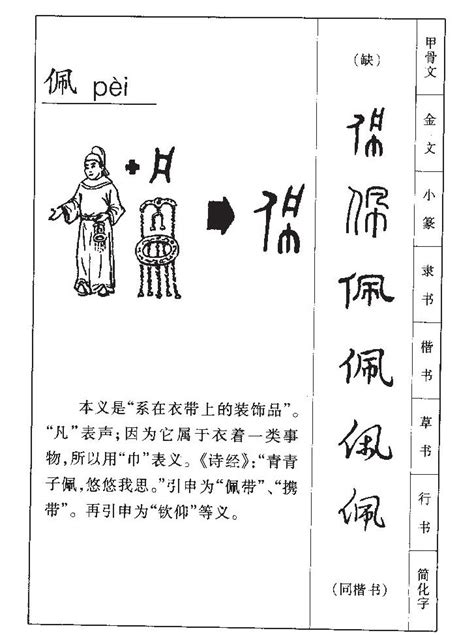 佩 pèi
本义是“系在衣带上的装饰品”。
“凡”表声；因为它属于衣着一类事
物，所以用“巾”表义。《诗经》：“青青
子佩，悠悠我思。”引申为“佩带”、“携
带”。再引申为“钦仰”等义。
（缺）
佩
佩
佩
佩
佩
佩
（同楷书）
甲骨文
金文
小篆
隶书
楷书
草书
行书
简化字